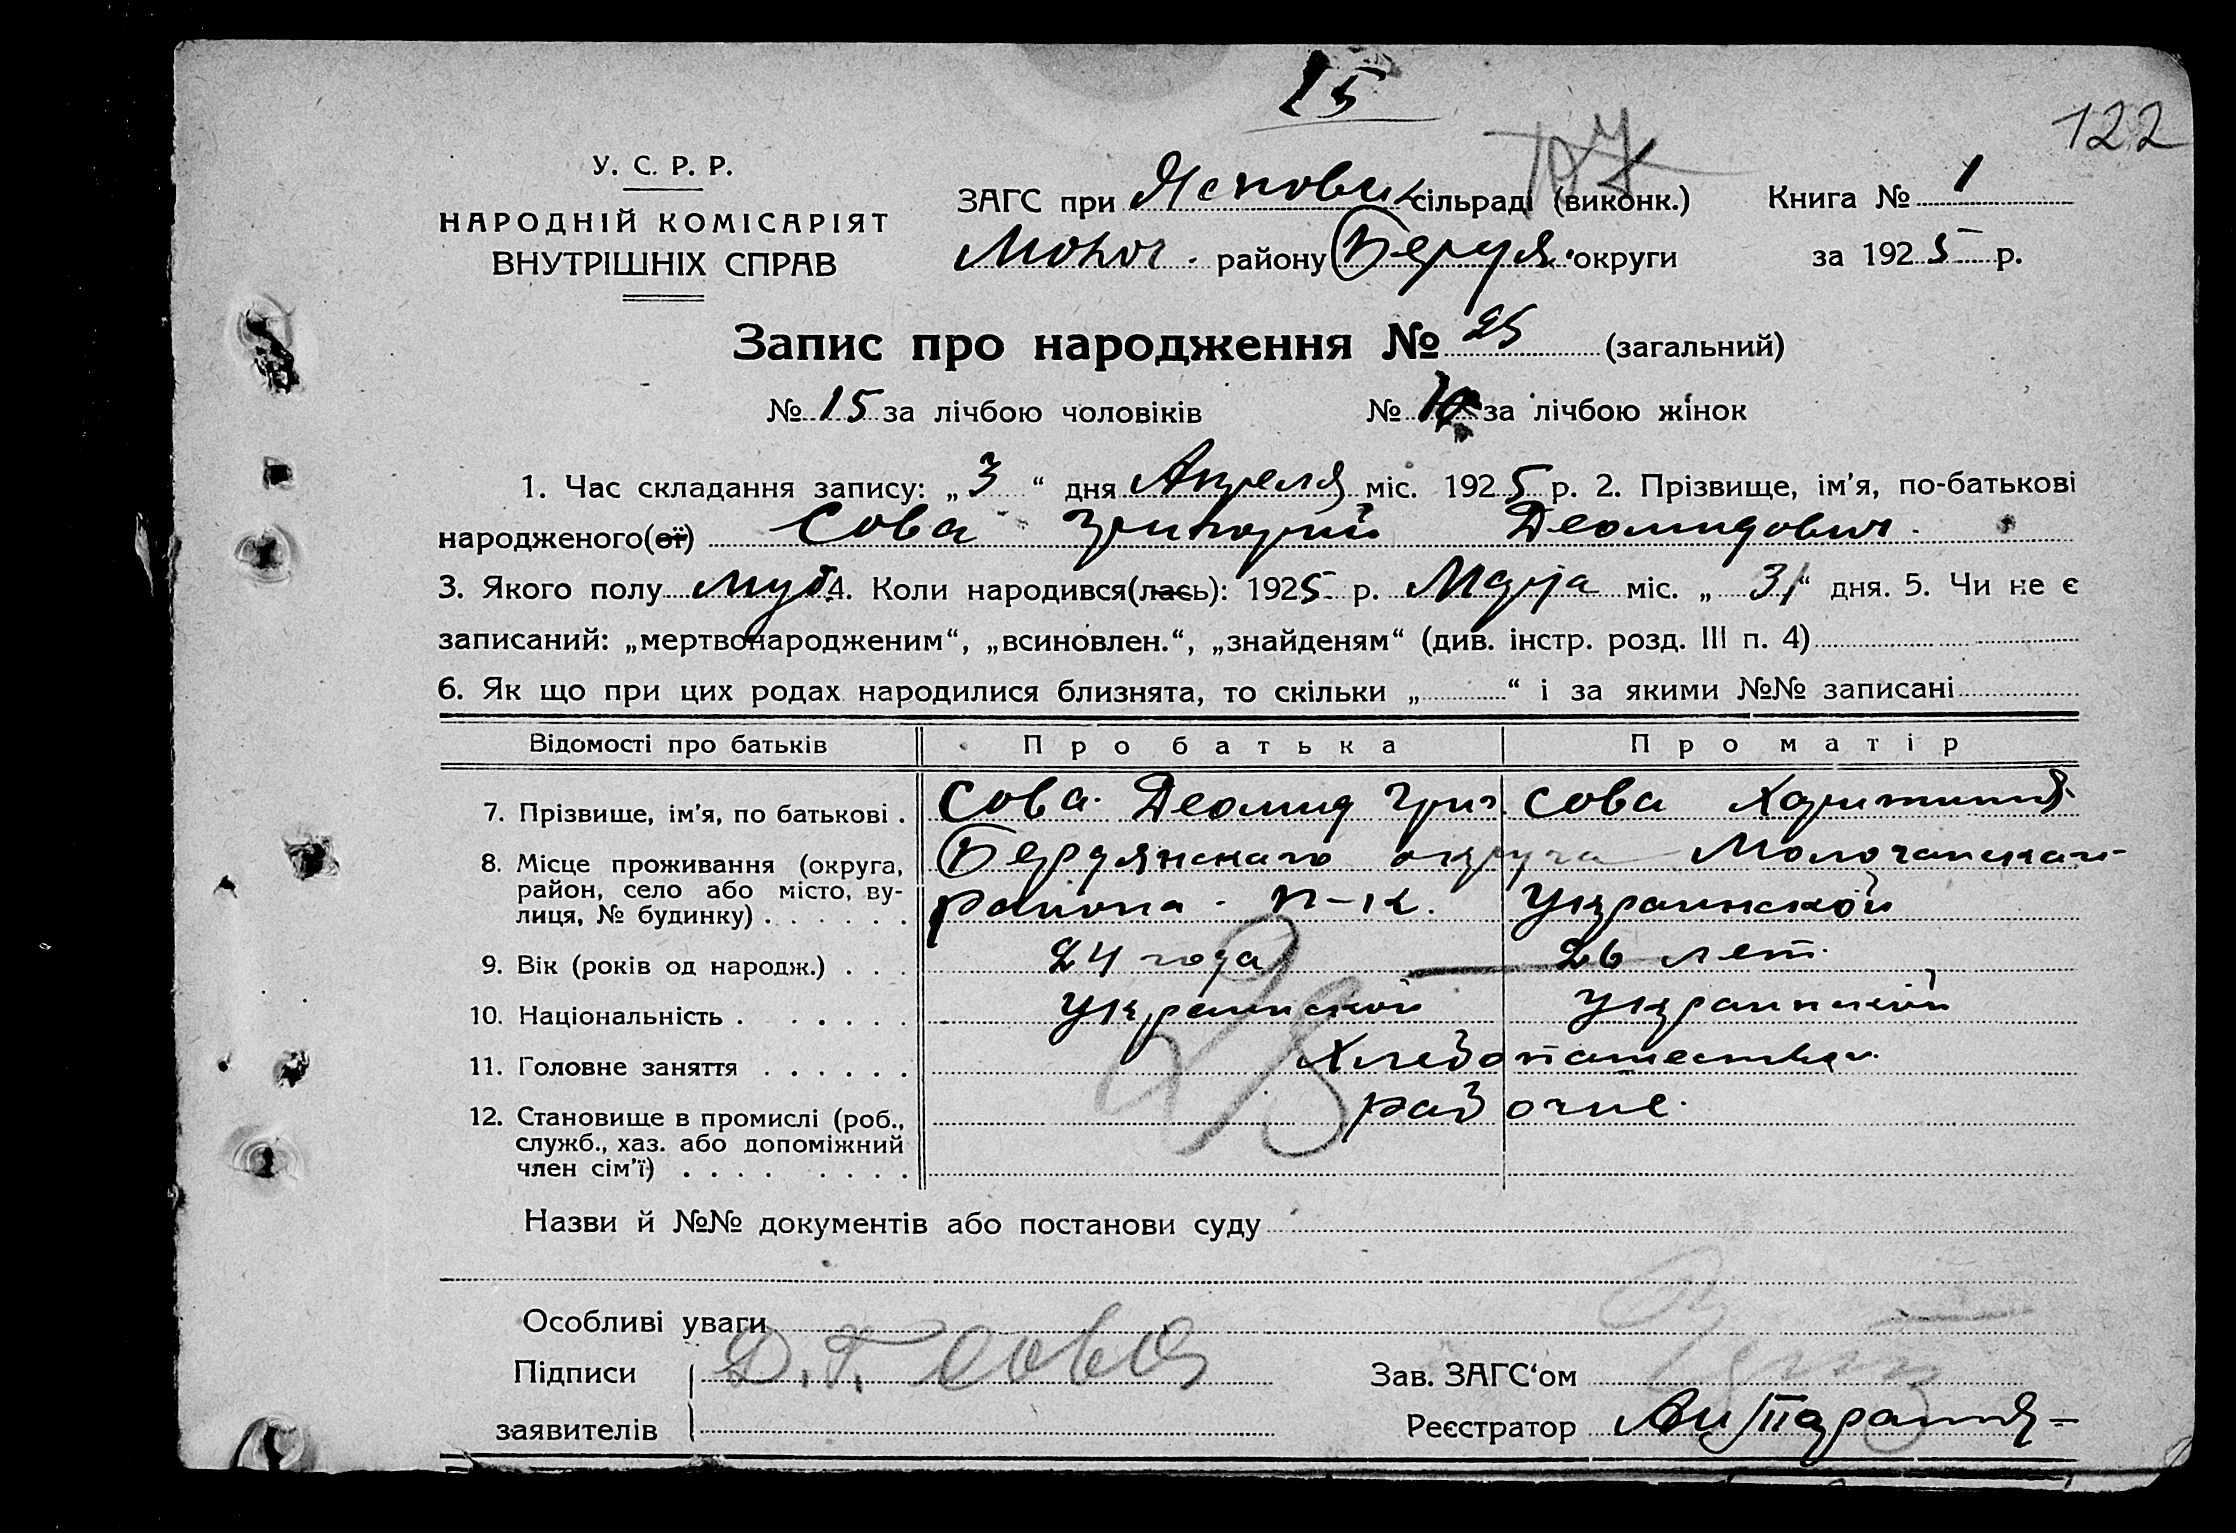 15
122
У. С. Р. Р.
НАРОДНІЙ КОМІСАРІЯТ
ВНУТРІШНІХ СПРАВ
ЗАГС при сільраді (виконк.) Книга № 1
Молоч. району Бердя. округи за 1925 р.
Запис про народження № 25 (загальний)
№ 15 за лічбою чоловіків № за лічбою жінок
1. Час складання запису: „3“ дня Апреля міс. 1925 р. 2. Прізвище, ім'я, по-батькові
народженого(ої) Сова Григорий Деомидович.
3. Якого полу муж. 4. Коли народився(лась): 1925 р. Марта міс. „31“ дня. 5. Чи не є
записаний: „мертвонародженим“, „всиновлен.“, „знайденям“ (див. інстр. розд. III п. 4)
6. Як що при цих родах народилися близнята, то скільки „ “ і за якими №№ записані
Відомості про батьків Про батька Про матір
7. Прізвище, ім'я, по батькові . Сова Деомид Григ. Сова Харитиния
8. Місце проживання (округа, район, село або місто, вулиця, № будинку) . . . . . . Бердянскаго округа Молочанскаго
района
Украинской
9. Вік (років од народж.) . . . 24 года 26 лет.
10. Національність . . . . . . Украинской Украинской
11. Головне заняття . . . . . . Хлебопашество
12. Становище в промислі (роб., служб., хаз. або допоміжний член сім'ї) . . . . . . . . рабочие.
25
Назви й №№ документів або постанови суду
Особливі уваги
Підписи Д. Г. Сова Зав. ЗАГС'ом
заявителів Реєстратор